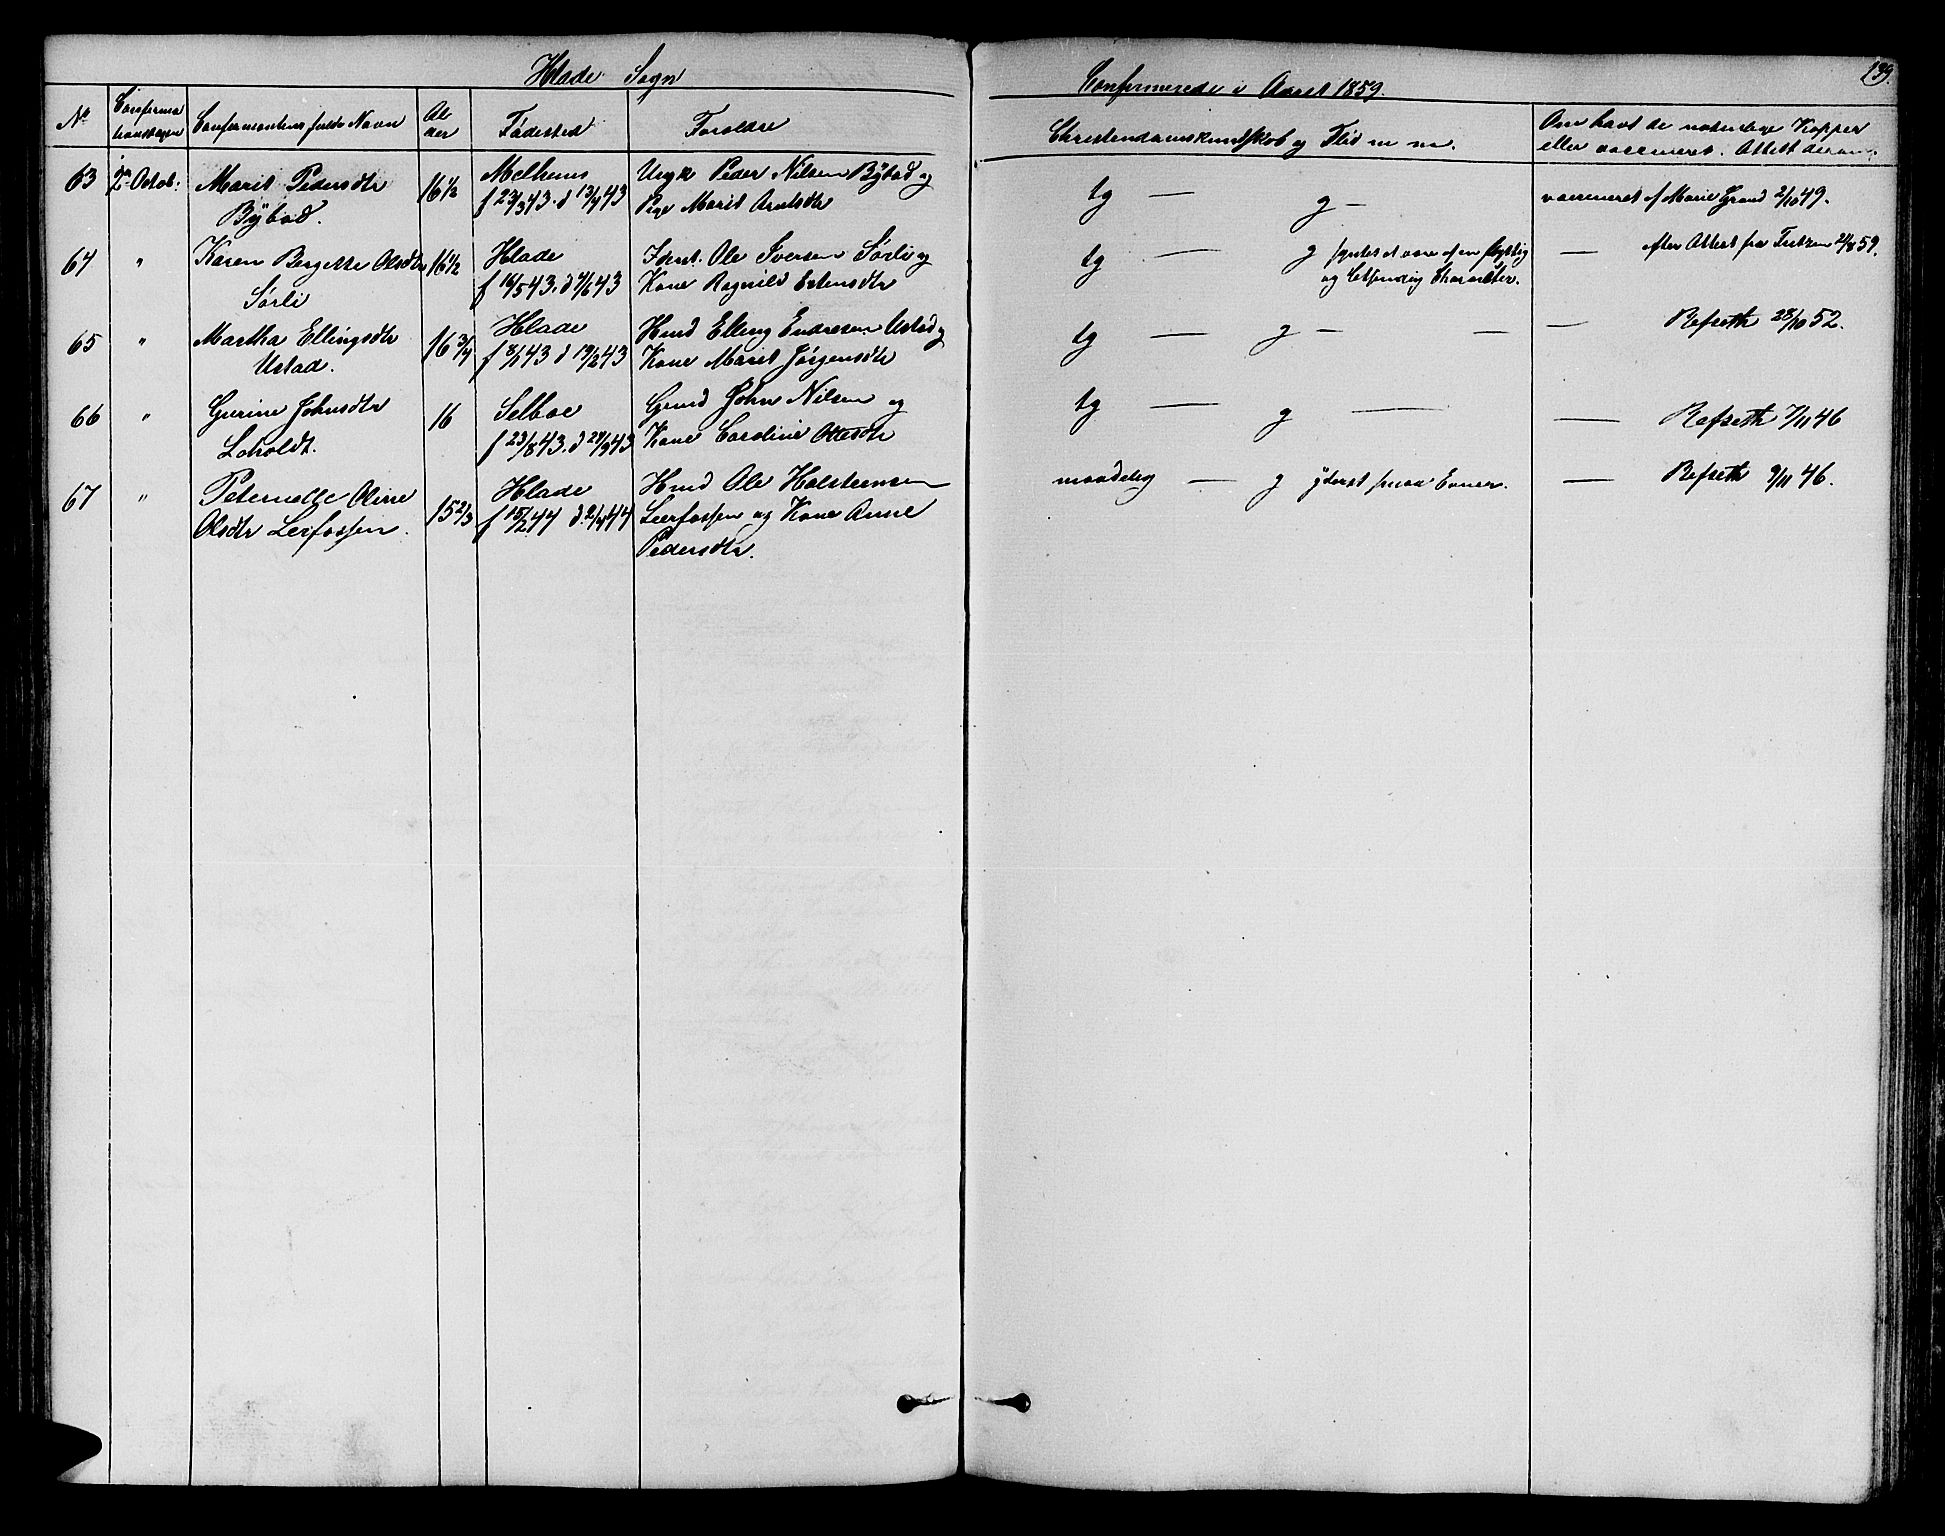 Hlade Sogn
Confirmerede i Aaret 1859.
139.
No
Confirma
tionsdagen
Confirmantens fulde Navn
Al
der
Fødested
Foreldre
Christendomskundskab og Flid m m.
Om havt de naturlige Kopper
eller vaccineret. Attest derom.
63
2 Octob:
Marit Pedersdtr
Bÿbod.
16 1/2
Melhuus
f 23/3 43. d 13/4 43
Ungk Peder Nilsen Bÿbod og
Pige Marit Arntsdtr
tg —
g —
vaccineret af Marie Grand 2/10 49.
64
"
Karen Bergitte Olsdtr
Sørli
16 1/2
Hlade
f 14/5 43. d 4/6 43
Ole Iversen Sørli og
Kone Ragnild Estensdtr
tg —
g syntes at være af en flygtig
og letsindig Charakter.
— efter Attest fra 59.
65
"
Martha Ellingsdtr
Ustad.
16 3/4
Hlade
f 8/1 43 d 19/2 43
Hmd Elling Endresen Ustad og
Kone Marit Jørgensdtr
tg —
g — —
— Refseth 28/10 52.
66
"
Gurine Johnsdtr
Loholdt.
16
Selboe
f 23/8 43. d 24/9 43
Gmd John Nilsen og
Kone Caroline Ottesdtr
tg —
g —
— Refseth 7/11 46
67
"
Peternelle Oline
Olsdtr Leirfossen.
15 2/3
Hlade
f 15/2 44 d. 2/4 44
Hmd Ole Halsteensen
Leerfossen og Kone Anne
Pedersdtr.
maadelig —
g yderst smaa Evner.
— Refseth 9/11 46.